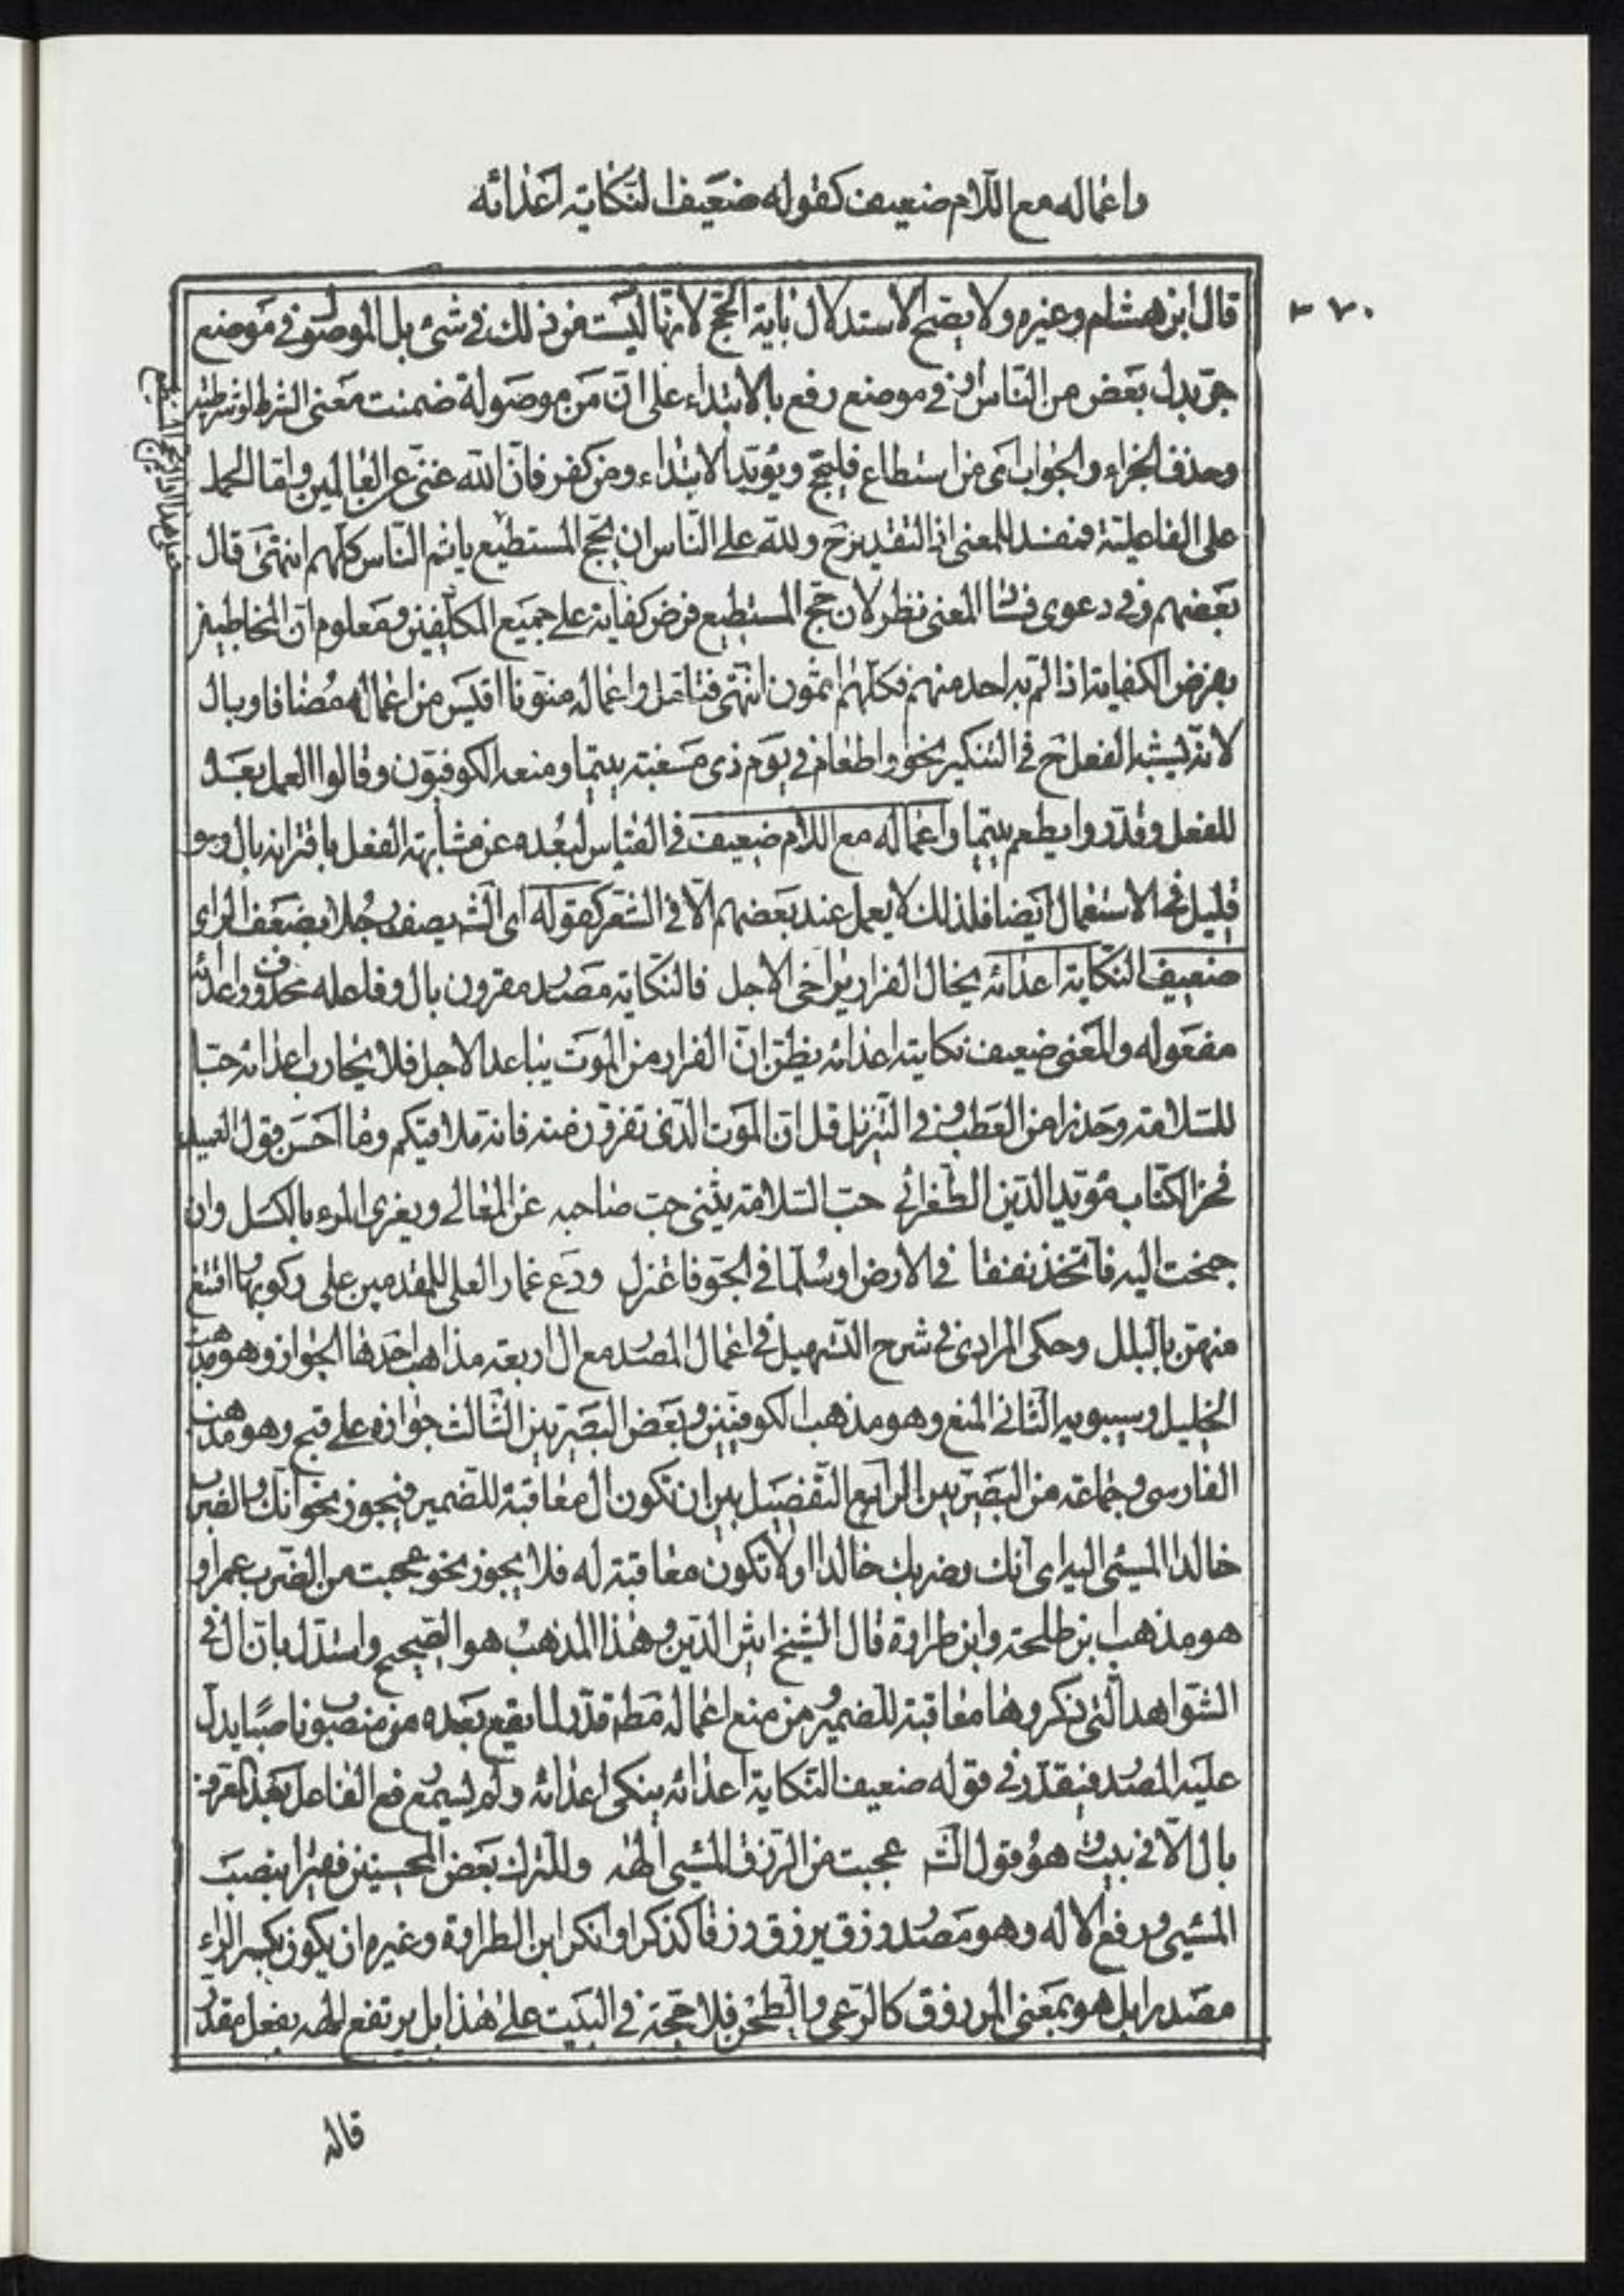 واعماله مع اللام ضعيف كقوله ضعيف النكاية اعدائه
٢٧٠
قال ابن هشام وغيره ولا يصح الاستدلال باية الحج لانها ليست من ذلك في شئ بل الموصول في موضع
جر بدل بعض من الناس او في موضع رفع بالابتداء على ان من موصولة ضمنت معنى الشرط او شرطية
وحذف الجزاء والجواب اى من استطاع فليحج ويؤيد الابتداء ومن كفر فان الله غنى عن العالمين واما الحمل
على الفاعلية فمفسد للمعنى اذ التقدير ح ولله على الناس ان يحج المستطيع ياثم الناس كلهم انتهى قال
بعضهم وفي دعوى فساد المعنى نظر لان حج المستطيع فرض كفاية على جميع المكلفين ومعلوم ان المخاطبين
بفرض الكفاية اذا لم به احد منهم فكلهم اثمون انتهى فتامل واعماله منونا اقيس من اعماله مضافا وبال
لانه يشبه الفعل ح في التنكير نحو او اطعام في يوم ذى مسغبة يتيما ومنعه الكوفيون وقالوا العمل بعده
للفعل وقدروا يطعم يتيما واعماله مع اللام ضعيف في القياس لبعده عن مشابهة الفعل باقترانه بال وهو
قليل في الاستعمال ايضا فلذلك لا يعمل عند بعضهم الا في الشعر كقوله اى الش يصف رجلا بضعف الراى
ضعيف النكاية اعدائه يخال الفرار يراخى الاجل فالنكاية مصدر مقرون بال وفاعله محذوف واعدائه
مفعوله والمعنى ضعيف نكايته اعدائه يظن ان الفرار من الموت يباعد الاجل فلا يحارب اعدائه حبا
للسلامة وحذرا من العطب وفي التنزيل قل ان الموت الذى تفرون منه فانه ملاقيكم وما احسن قول العميد
فخر الكتاب مؤيد الدين الطغرائى حب السلامة يثنى حب صاحبه عن المعالى ويغرى المرء بالكسل وان
جنحت اليه فاتخذ نفقا في الارض او سلما في الجو فاعتزل ودع غمار العلى للمقدمين على ركوبها واقتنع
منهن بالبلل وحكى المرادى في شرح التسهيل في اعمال المصدر مع ال اربعة مذاهب احدها الجواز وهو مذهب
الخليل وسيبويه الثانى المنع وهو مذهب الكوفيين وبعض البصريين الثالث جوازه على قبح وهو مذهب
الفارسى وجماعة من البصريين الرابع التفصيل بين ان تكون ال معاقبة للضمير فيجوز نحو انك والضرب
خالدا المسئ اليه اى انك وضربك خالدا او لا تكون معاقبة له فلا يجوز نحو عجبت من الضرب عمرا و
هو مذهب ابن طلحة وابن طراوة قال الشيخ اثير الدين وهذا المذهب هو الصحيح واستدل بان ال في
الشواهد التى ذكروها معاقبة للضمير ومن منع اعماله مطلقا قدر لما يقع بعده من منصوب ناصبا يدل
عليه المصدر فيقدر في قوله ضعيف النكاية اعدائه ينكى اعدائه ولم يسمع رفع الفاعل بعد المقرون
بال الا في بيت وهو قول الش عجبت من الرزق المسئ الهه والترك بعض المحسنين فقيرا بنصب
المسئ ورفع الاله وهو مصدر رزق يرزق رزقا كذكرا وانكر ابن الطراوة وغيره ان يكون بكسر الراء
مصدرا بل هو بمعنى المرزوق كالرعى والطحن فلا حجة في البيت على هذا بل يرتفع الهه بفعل مقدر
قاله